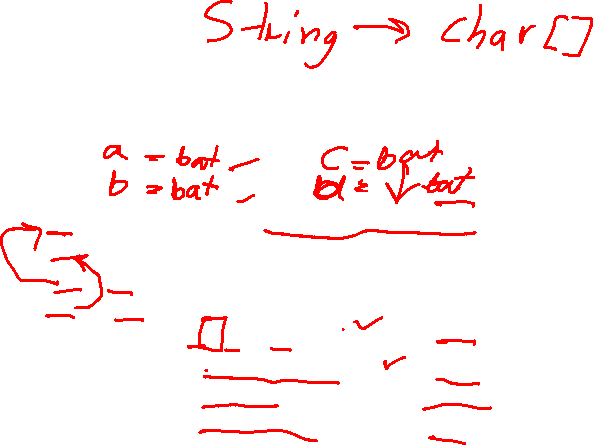 String → char[]
a = bat
b = bat
c = bat
d = bat